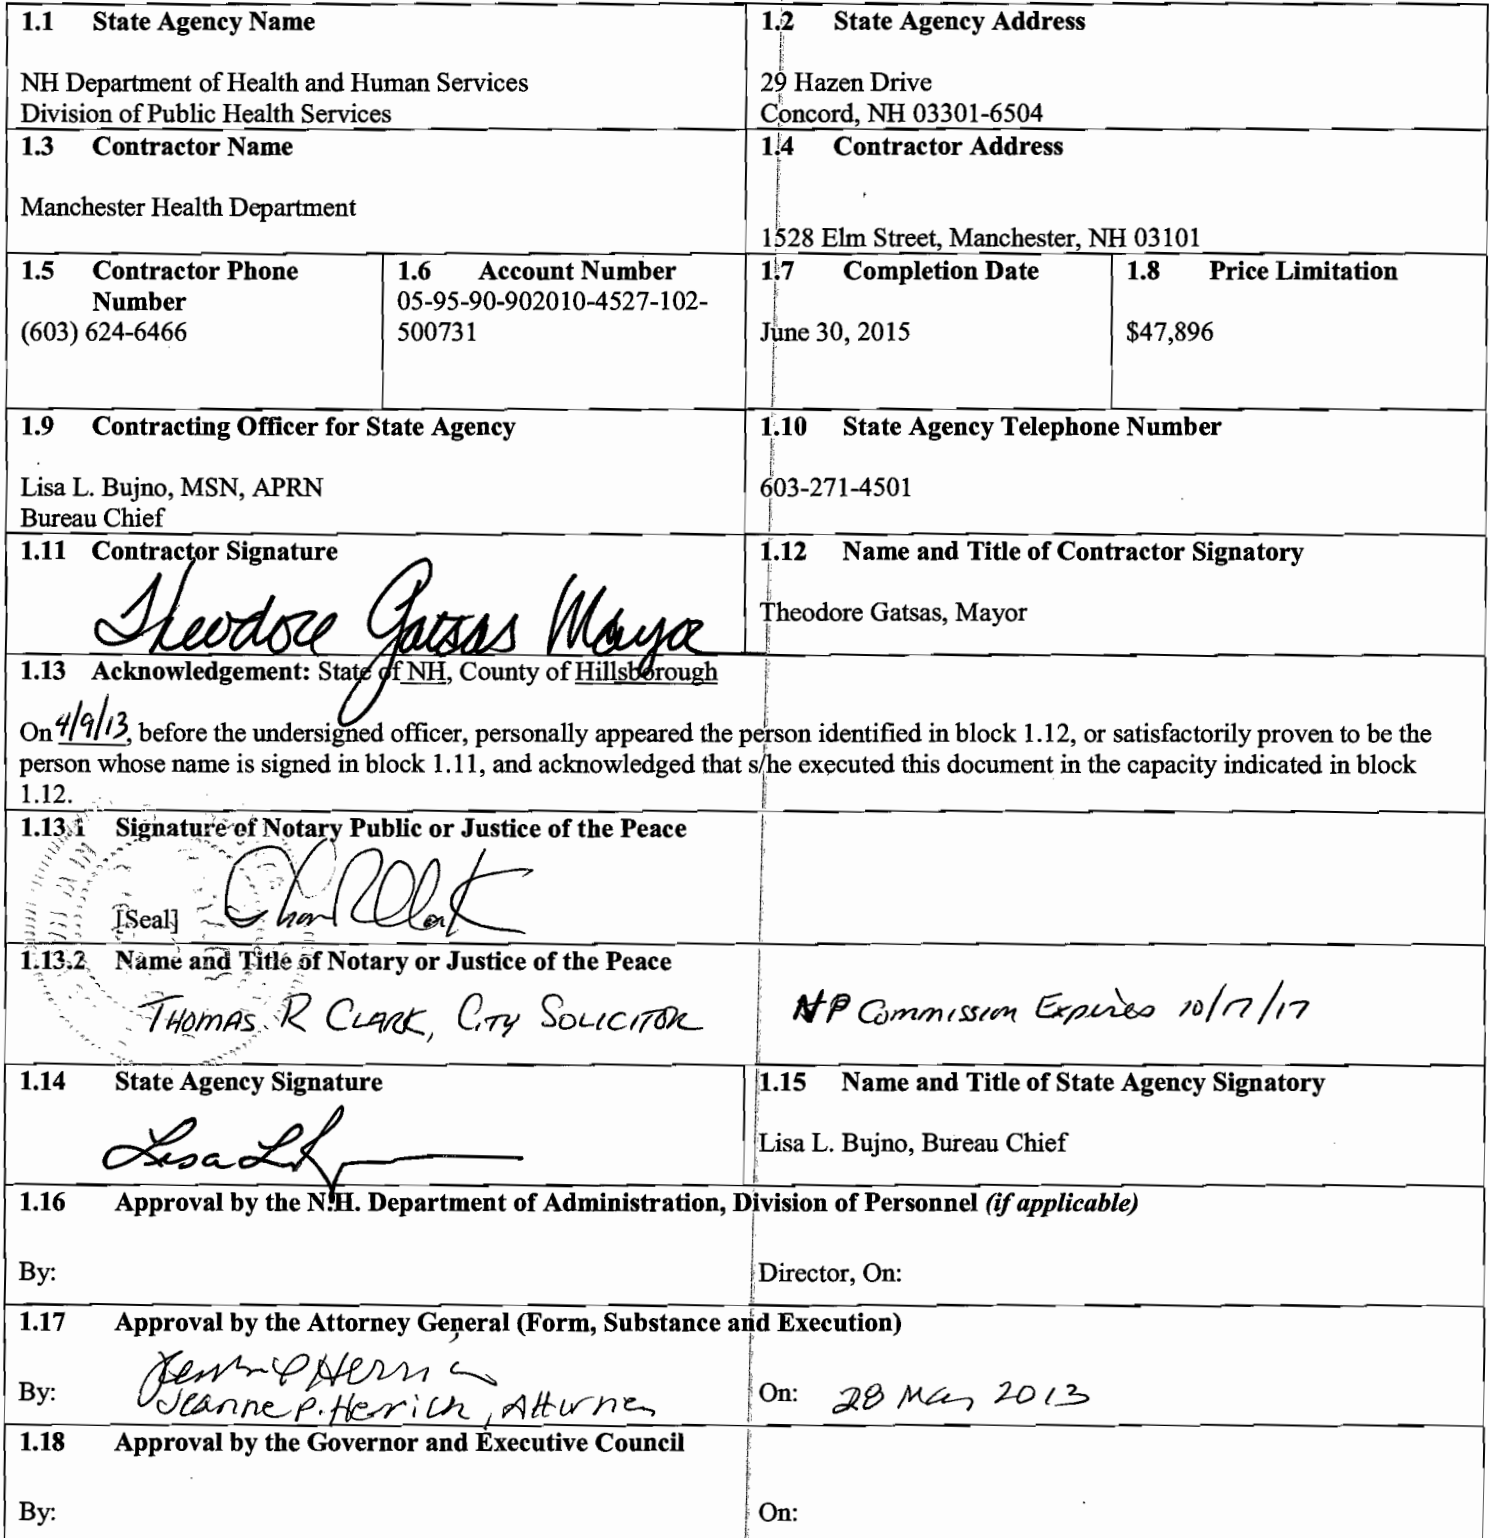 1.1 State Agency Name
1.2 State Agency Address
NH Department of Health and Human Services
Division of Public Health Services
29 Hazen Drive
Concord, NH 03301-6504
1.3 Contractor Name
1.4 Contractor Address
Manchester Health Department
1528 Elm Street, Manchester, NH 03101
1.5 Contractor Phone
Number
(603) 624-6466
1.6 Account Number
05-95-90-902010-4527-102-
500731
1.7 Completion Date
June 30, 2015
1.8 Price Limitation
$47,896
1.9 Contracting Officer for State Agency
Lisa L. Bujno, MSN, APRN
Bureau Chief
1.10 State Agency Telephone Number
603-271-4501
1.11 Contractor Signature
Theodore Gatsas Mayor
1.12 Name and Title of Contractor Signatory
Theodore Gatsas, Mayor
1.13 Acknowledgement: State of NH, County of Hillsborough
On 4/9/13, before the undersigned officer, personally appeared the person identified in block 1.12, or satisfactorily proven to be the
person whose name is signed in block 1.11, and acknowledged that s/he executed this document in the capacity indicated in block
1.12.
1.13.1 Signature of Notary Public or Justice of the Peace
[Seal]
1.13.2 Name and Title of Notary or Justice of the Peace
THOMAS R CLARK, CITY SOLICITOR
NP Commission Expires 10/17/17
1.14 State Agency Signature
Lisa L
1.15 Name and Title of State Agency Signatory
Lisa L. Bujno, Bureau Chief
1.16 Approval by the N.H. Department of Administration, Division of Personnel (if applicable)
By:
Director, On:
1.17 Approval by the Attorney General (Form, Substance and Execution)
By: Jeanne P. Herrick, Attorney
On: 28 May 2013
1.18 Approval by the Governor and Executive Council
By:
On: